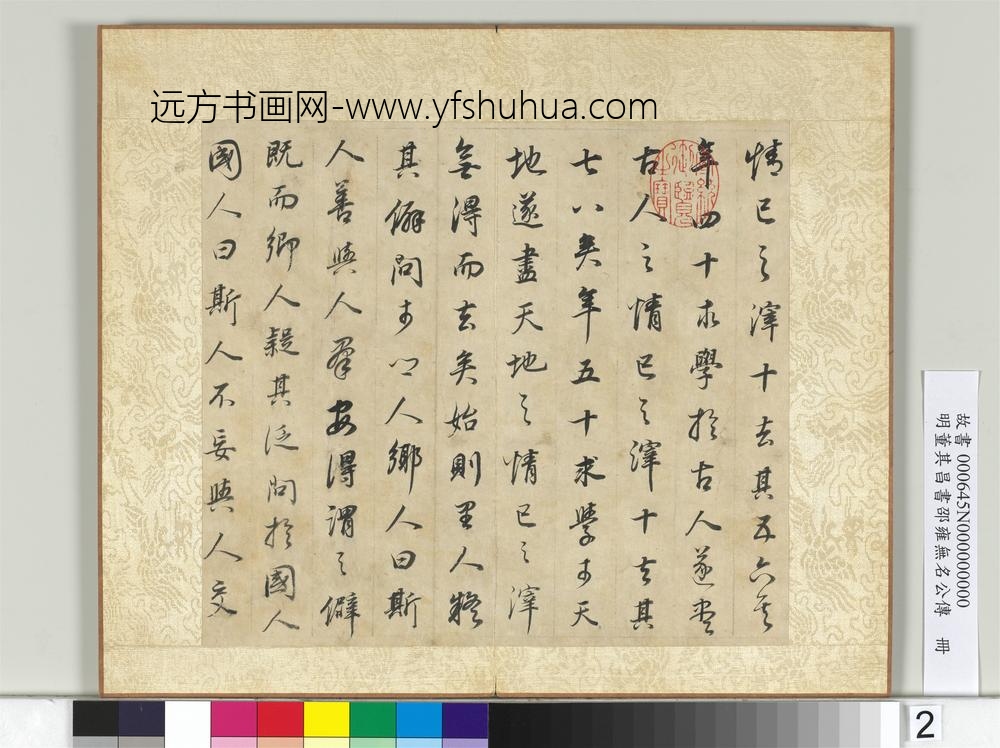 远方书画网-www.yfshuhua.com
情已之滓十去其五六矣
年四十求學於古人遂盡
古人之情已之滓十去其
七八矣年五十求學於天
地遂盡天地之情已之滓
無得而去矣始則里人疑
其僻問於鄉人鄉人曰斯
人善與人群安得謂之僻
既而鄉人疑其泛問於國人
國人曰斯人不妄與人交
故書 000645N000000000
明董其昌書邵雍無名公傳 冊
2